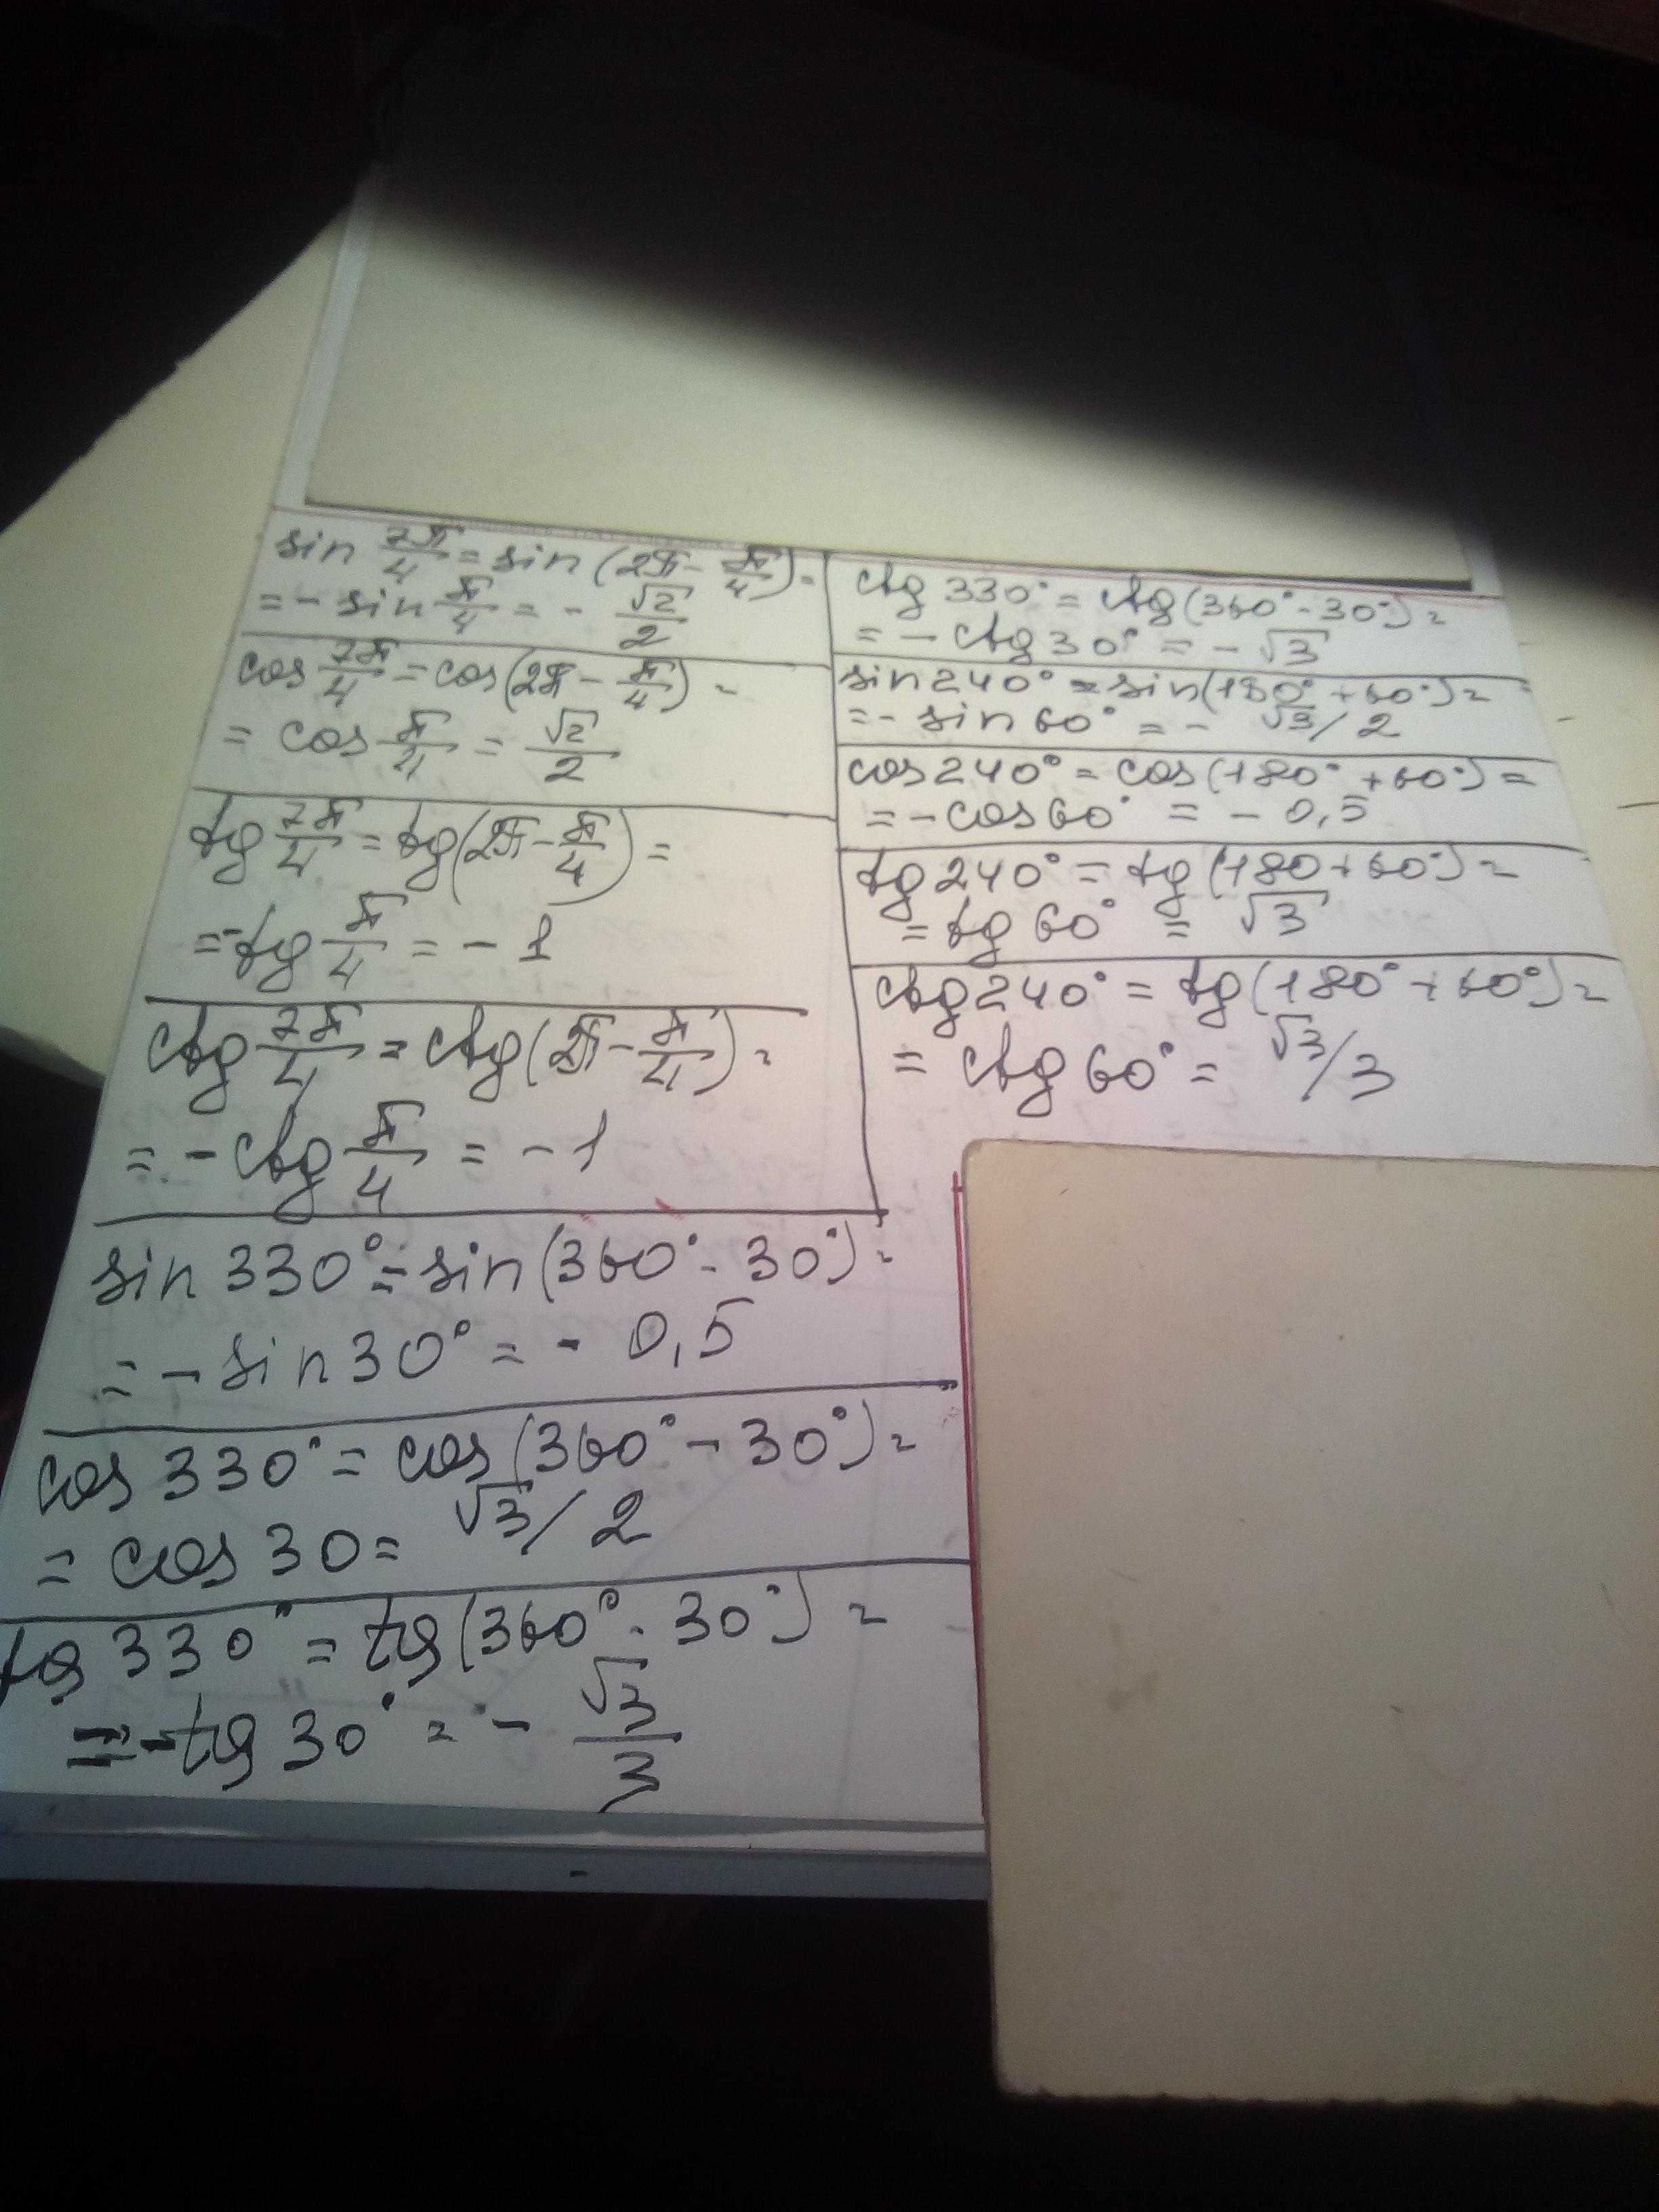 sin 7π/4 = sin (2π - π/4) =
= - sin π/4 = - √2/2
cos 7π/4 = cos (2π - π/4) =
= cos π/4 = √2/2
tg 7π/4 = tg (2π - π/4) =
= -tg π/4 = - 1
ctg 7π/4 = ctg (2π - π/4) =
= - ctg π/4 = - 1
sin 330° = sin (360° - 30°) =
= - sin 30° = - 0,5
cos 330° = cos (360° - 30°) =
= cos 30 = √3/2
tg 330° = tg (360° - 30°) =
= - tg 30° = - √3/3
ctg 330° = ctg (360° - 30°) =
= - ctg 30° = - √3
sin 240° = sin (180° + 60°) =
= - sin 60° = - √3/2
cos 240° = cos (180° + 60°) =
= - cos 60° = - 0,5
tg 240° = tg (180 + 60°) =
= tg 60° = √3
ctg 240° = tg (180° + 60°) =
= ctg 60° = √3/3